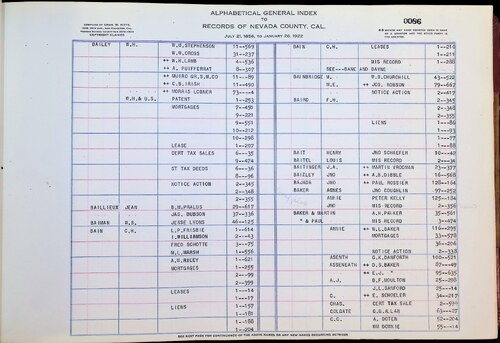 ALPHABETICAL GENERAL INDEX
TO
RECORDS OF NEVADA COUNTY, CAL.
JULY 21, 1856, TO JANUARY 26, 1922
0056
BAILEY W.H. W.M.STEPHENSON 11--569
W.W.CROSS 31--237
++ W.H.LAMB 4--536
++ A. PUIFFERRAT 8--307
++ MUIRO GR.S.M.CO 11--89
++ C.B.IRISH 11--490
++ MORRIS LOSKEY 73--4
W.H.& U.S. PATENT 1--253
MORTGAGES 7--450
9--221
9--551
10--212
10--298
LEASE 1--207
CERT TAX SALES 6--35
9--474
ST TAX DEEDS 6--36
8--96
NOTICE ACTION 2--345
2--348
2--345
BAILLIEUX JEAN B.M.PRALUS 29--617
JAS. DODSON 37--336
BAIMAN W.S. JESSE LYONS 46--125
BAIN C.H. L.F.FRISBIE 1--614
I.WILLIAMSON 2--43
FRED SCHOTTE 3--75
M.L.MARSH 1--556
A.H.HAILEY 1--621
MORTGAGES 1--255
2--99
2--399
LEASES 1--14
1--17
LIENS 1--157
1--181
1--188
1--204
BAIN C.H. LEASES 1--210
1--211
MIS RECORD 1--288
SEE---BANE AND BAYNE
BAINBRIDGE M. R.S.CHURCHILL 43--522
M.E. ++ JOS. ROBSON 79--662
NOTICE ACTION 2--417
BAIRD F.H. 2--345
2--345
LIENS 1--86
1--93
1--77
1--88
BAIT HENRY JNO SCHAEFER 10--42
BAITEL LOUIS MIS RECORD 2--34
BAITINGER J.A. ++ MARTIN BROGMAN 23--377
BAIZLEY JNO ++ A.B.DIBBLE 16--568
BAJADA JNO ++ PAUL ROSSIER 128--104
BAKER AGNES JNO COUGHLIN 97--252
ANNIE PETER KELLY 125--184
JNO MIS RECORD 2--356
BAKER & MARTIN A.H.PARKER 35--591
" & PAUL MIS RECORD 3--474
ANNIE ++ W.L.BAKER 116--295
MORTGAGES 33--578
36--206
NOTICE ACTION 2--338
ASENTH G.K.DANFORTH 100--521
ASSENEATH ++ D.S.BAKER 87--49
++ E.J. " 95--635
A.J. B.F.MOULTON 25--298
J.L.SANFORD 25--14
C. ++ E. SCHOFLER 34--217
CHAS, CERT TAX SALE 2--599
COLGATE G.D.ALLAN 63--27
C.C. A. DOTER 52--204
WM DOWNIE 55--14